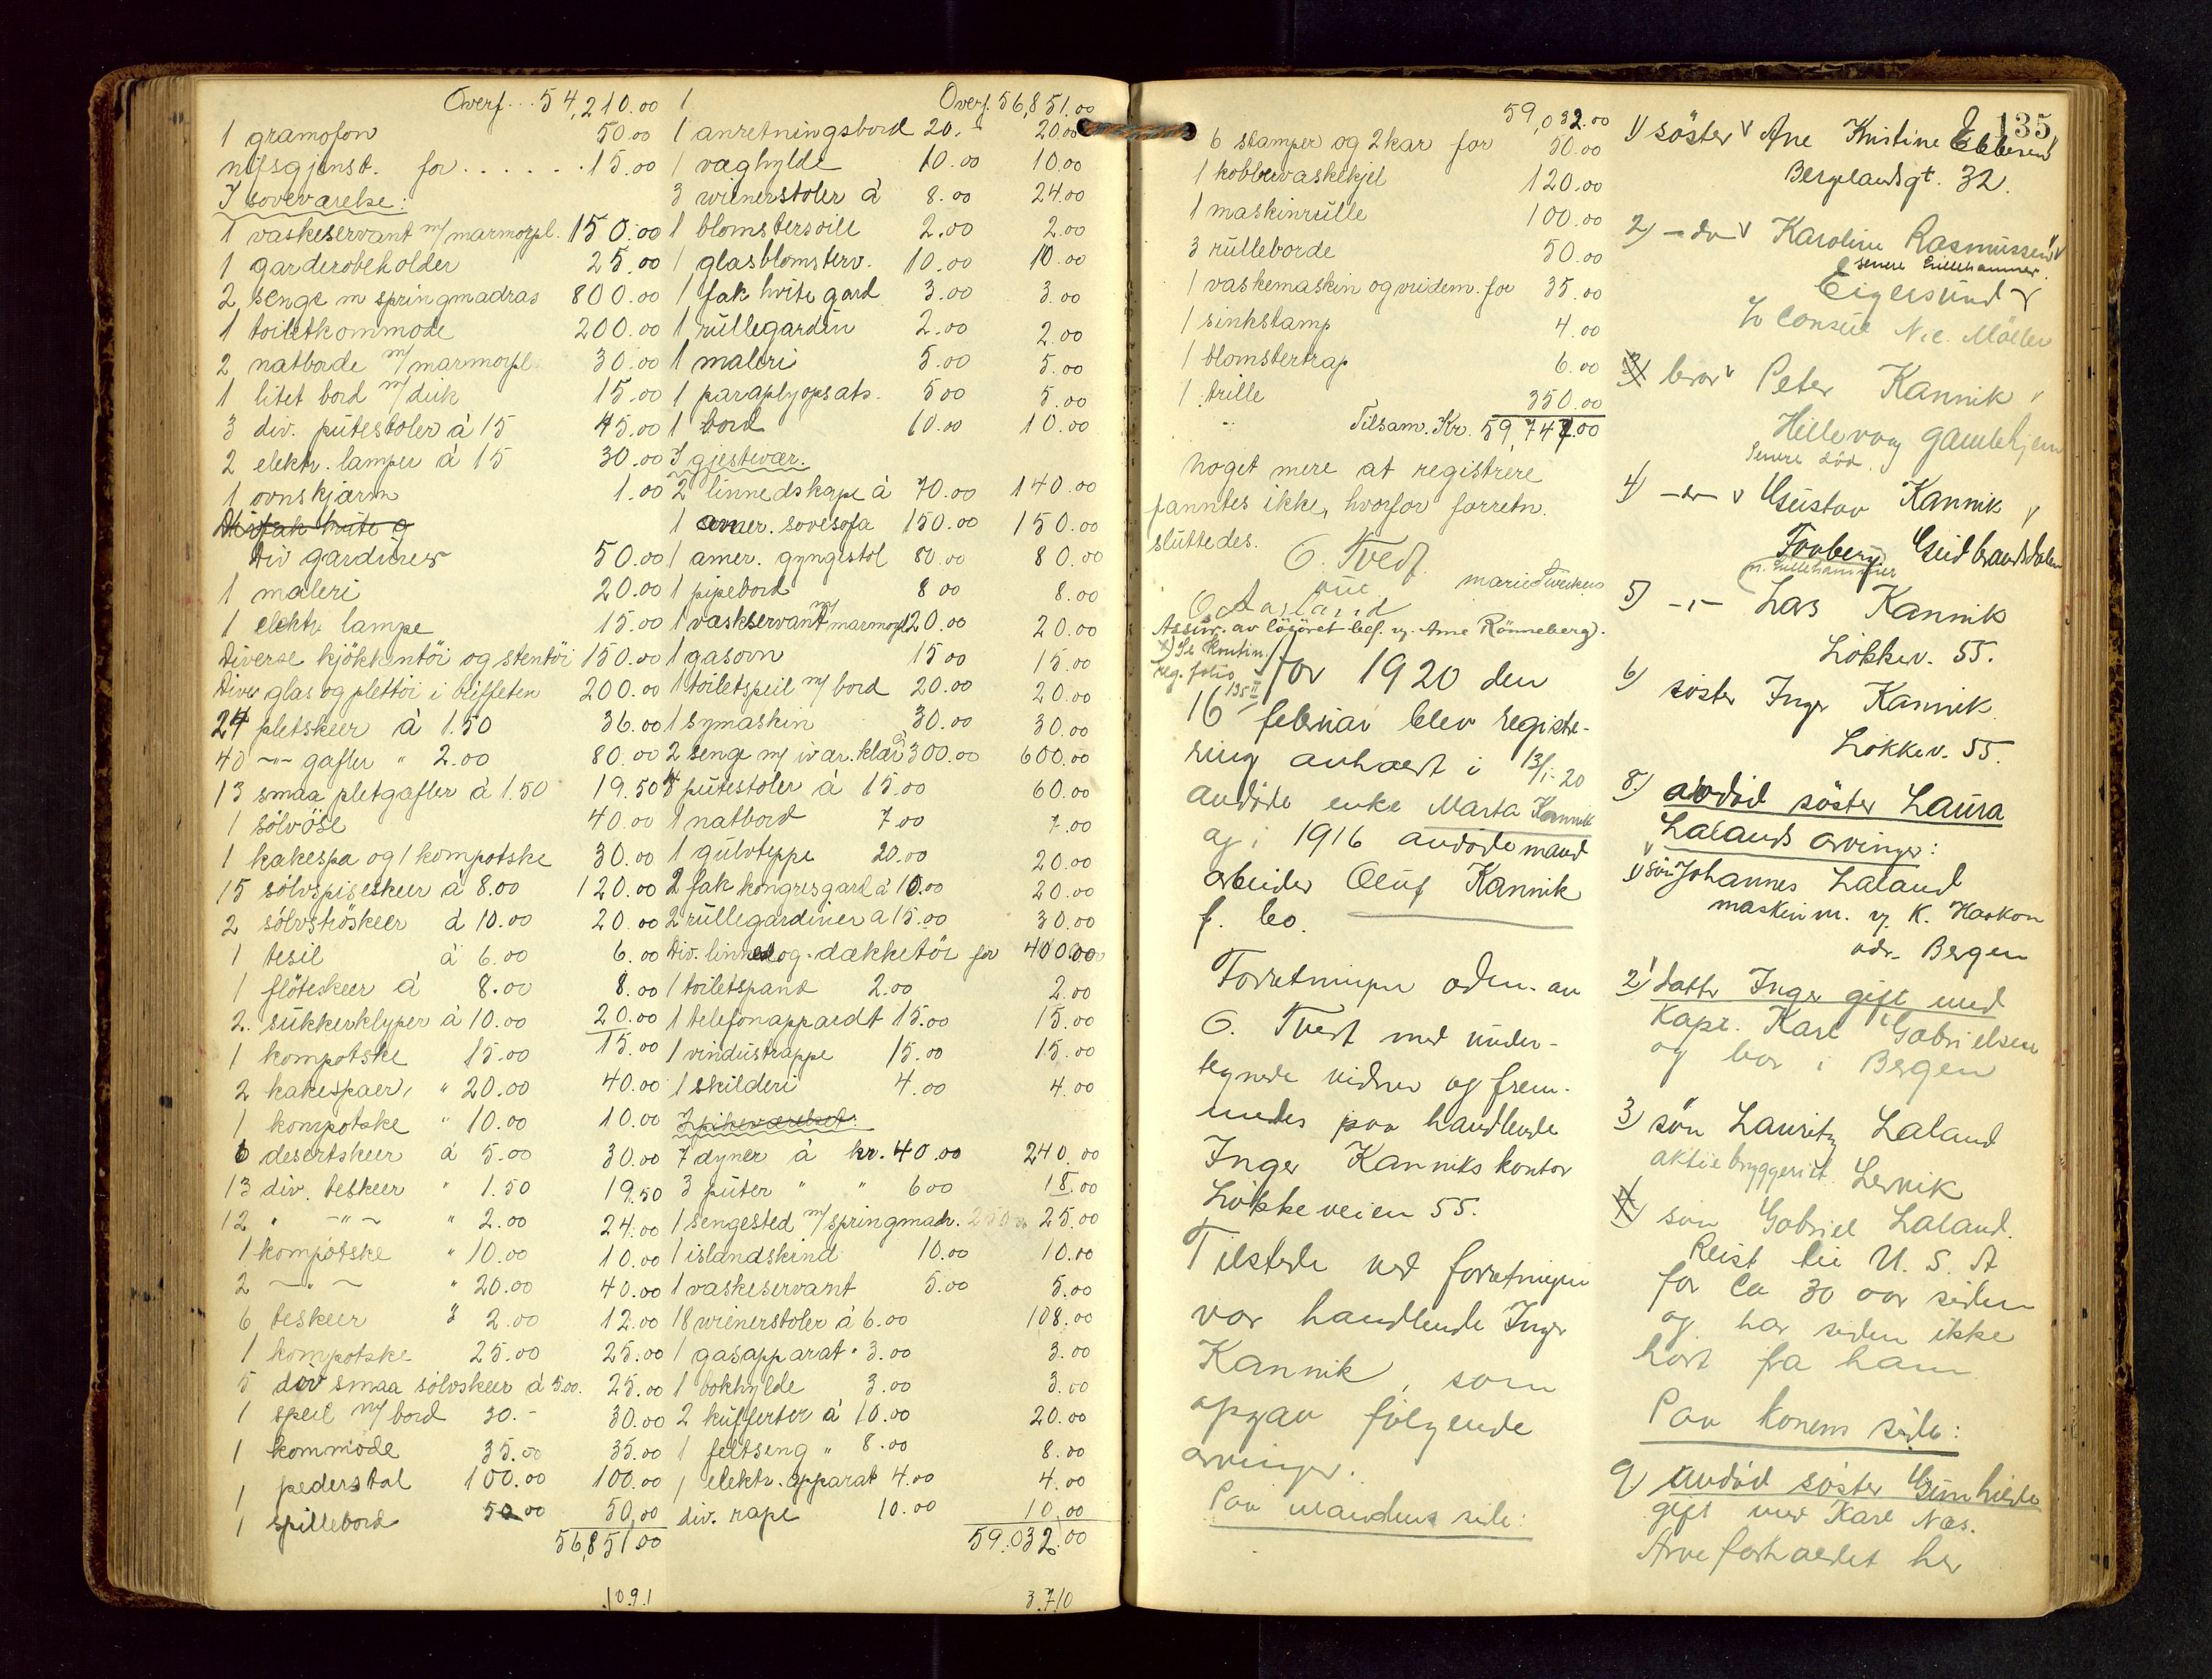 Overf... 54,210.00
1 gramofon 50.00
nipsgjenst. for ...... 15.00
I soveværelse:
1 vaskeservant m/marmorpl. 150.00
1 garderobeholder 25.00
2 senge m springmadras 800.00
1 toiletkommode 200.00
2 natborde m/marmorpl. 30.00
1 litet bord m/duk 15.00
3 div. putestoler à 15 45.00
2 elektr. lamper à 15 30.00
1 ovnskjærm 1.00
Div gardiner 50.00
1 maleri 20.00
1 elektr. lampe 15.00
Diverse kjökkentöi og stentöi 150.00
Diver glas og plettöi i biffeten 200.00
24 pletskeer à 1.50 36.00
40 -"- gafler " 2.00 80.00
13 smaa pletgafler à 1.50 19.50
1 sölvöse 40.00
1 kakespa og 1 kompotske 30.00
15 sölvspiseskeer à 8.00 120.00
2 sölvströskeer à 10.00 20.00
1 tesil à 6.00 6.00
1 flöteskeer à 8.00 8.00
2. sukkerklyper à 10.00 20.00
1 kompotske 15.00 15.00
2 kakespaer, " 20.00 40.00
1 kompotske " 10.00 10.00
6 desertskeer à 5.00 30.00
13 div. teskeer " 1.50 19.50
12 " -"- " 2.00 24.00
1 kompotske " 10.00 10.00
2 -"- " 20.00 40.00
6 teskeer à 2.00 12.00
1 kompotske 25.00 25.00
5 div smaa sölvskeer à 5.00. 25.00
1 speil m/bord 30.- 30.00
1 kommode 35.00 35.00
1 pederstal 100.00 100.00
1 spillebord 50.00 50.00
56,851.00
1091
1 Overf. 56,851.00
1 anretningsbord 20.- 20.00
1 væghylde 10.00 10.00
3 wienerstoler à 8.00 24.00
1 blomstersoile 2.00 2.00
1 glasblomsterv. 10.00 10.00
1 fak hvite gard 3.00 3.00
1 rullegardin 2.00 2.00
1 maleri 5.00 5.00
1 paraplyopsats. 5.00 5.00
1 bord 10.00 10.00
I gjestevær.
2 linnedskape à 70.00 140.00
1 amer. sovesofa 150.00 150.00
1 amer. gyngestol 80.00 80.00
1 pipebord 8.00 8.00
1 vaskservant m/marmorpl 20.00 20.00
1 gasovn 15.00 15.00
1 toiletspeil m/ bord 20.00 20.00
1 symaskin 30.00 30.00
2 senge m/ ivar. klær à 300.00 600.00
4 putestoler à 15.00 60.00
1 natbord 7.00 7.00
1 gulvteppe 20.00 20.00
2 fak kongresgard à 10.00 20.00
2 rullegardiner à 15.00 30.00
Div. linned og dækketöi for 400.00
1 toiletspand 2.00 2.00
1 telefonapparat 15.00 15.00
1 vindustrappe 15.00 15.00
1 skilderi 4.00 4.00
I pikeværelset:
7 dyner à kr. 40.00 240.00
3 puter " " 6.00 18.00
1 sengested m/springmadr. 25.00 25.00
1 islandskind 10.00 10.00
1 vaskeservant 5.00 5.00
18 wienerstoler à 6.00 108.00
1 gasapparat " 3.00 3.00
1 bokhylde 3.00 3.00
2 kufferter à 10.00 20.00
1 feltseng " 8.00 8.00
1 elektr. apparat 4.00 4.00
div. rape 10.00 10.00
59.032.00
3.710
59,032.00
6 stamper og 2 kar for 50.00
1 kobbervaskekjel 120.00
1 maskinrulle 100.00
3 rulleborde 50.00
1 vaskemaskin og vridem. for 35.00
1 sinkstamp 4.00
1 blomstertrap 6.00
1 trille 350.00
Tilsam. Kr. 59,747.00
Noget mere at registrere
fanntes ikke, hvorfor forretn.
sluttedes.
O. Tvedt
O. Aasland
Assur. av lösöret bef. vg. Arne Rönneberg).
x) Se kontin.
reg. folio
135 II
Aar 1920 den
16 februar blev registre-
ring avholdt i 13/1-20
avdöde enke Marta Kannik
og i 1916 avdöde mand
arbeider Oluf Kannik
f. bo.
Forretningen adm. av
O. Tvedt med under-
tegnede vidner og frem-
medes paa handlende
Inger Kanniks kontor
Lökkeveien 55.
Tilstede ved forretningen
var handlende Inger
Kannik, som
opgav følgende
arvinger.
Paa mandens side:
135
1) söster v Ane Kristine Ebbesen
Bergelandsgt. 32.
2) -do- v Karoline Rasmussen v
senere Lillehammer.
Eigersund
c/o Consul N. C. Möller
3) bror v Peter Kannik v
Hillevaag gamlehjem
Senere död.
4) -do- v Gustav Kannik v
Faaberg Gudbrandsdalen
(v. Lillehammer
5) -"- Lars Kannik
Lökkev. 55.
6) söster Inger Kannik
Lökkev. 55.
8) avdöd söster Laura
Lalands arvinger:
1) sön Johannes Laland
maskinm. vg. K. Haakon
adr. Bergen
2) datter Inger gift med
Kapt. Karl Gabrielsen
og bor i Bergen
3) sön Lauritz Laland
aktiebryggeriet Lervik
4) sön Gabriel Laland.
Reist til U. S. A
for ca 30 aar siden
og har siden ikke
hørt fra ham
Paa konens side:
9) Avdöd söster Gunhilde
gift med Karl Næs.
Arveforholdet her